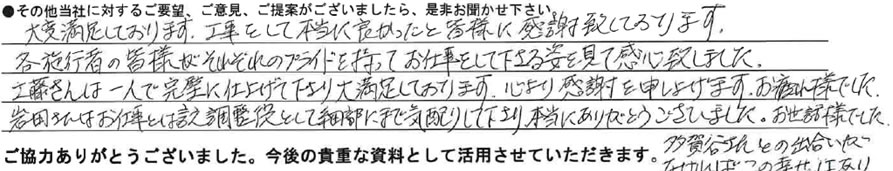 ●その他当社に対するご要望、ご意見、ご提案がございましたら、是非お聞かせ下さい。
大変満足しております。工事をして本当に良かったと皆様に感謝致しております。
各施行者の皆様がそれぞれのプライドを持ってお仕事をして下さる姿を見て感心致しました。
工藤さんは一人で完璧に仕上げて下さり大満足しております。心より感謝を申し上げます。お疲れ様でした。
岩田さんはお仕事とは言え調整役として細部にまで気配りして下さり、本当にありがとうございました。お世話様でした。
ご協力ありがとうございました。今後の貴重な資料として活用させていただきます。
多賀谷さんとの出会いが
なければこの幸せはあり